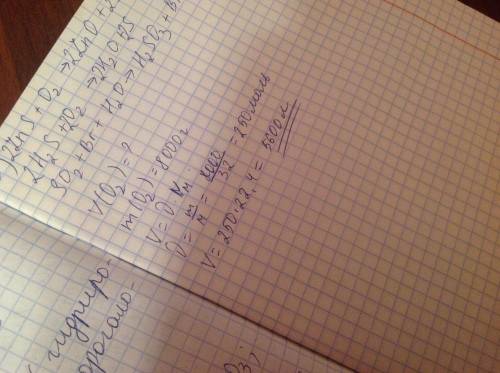 2ZnS + O₂ → 2ZnO + 2
2H₂S + O₂ → 2H₂O + 2S
SO₂ + Br + H₂O → H₂SO₃ + B
V(O₂) = ?
m(O₂) = 8000г
V = υ · Vм.
υ = m/м = 8000/32 = 250моль
V = 250 · 22,4 = 5600л
гидриро-